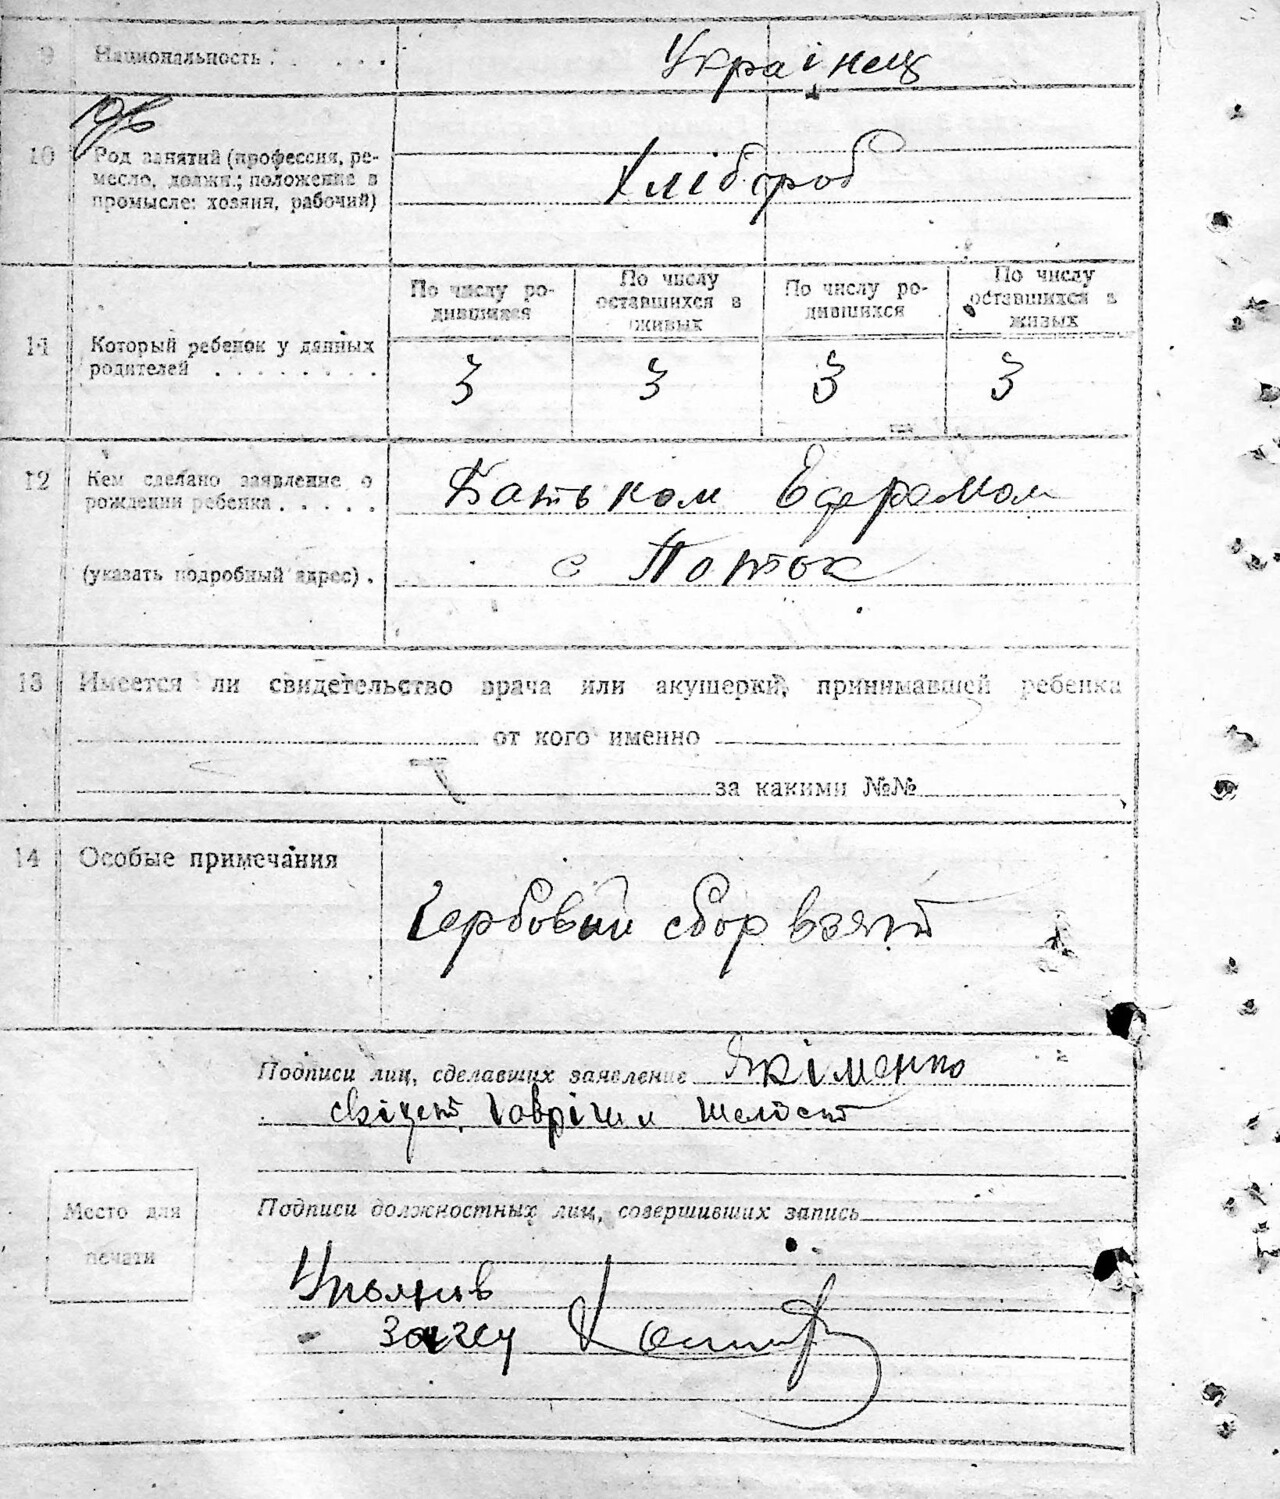 9 Национальность . . . . . . Украінец
10 Род занятий (профессия, ре-
месло, должн.; положение в
промысле: хозяин, рабочий)
Хлібороб
По числу ро-
дившихся
По числу
оставшихся в
живых
По числу ро-
дившихся
По числу
оставшихся в
живых
11 Который ребенок у данных
родителей . . . . . . . .
3 3 3 3
12 Кем сделано заявление о
рождении ребенка . . . . .
Батьком Ефремом
(указать подробный адрес) .
с Поток
13 Имеется ли свидетельство врача или акушерки, принимавшей ребенка
от кого именно
за какими №№
14 Особые примечания
Гербовий сбор взят
Подписи лиц, сделавших заявление Якіменко
свідет. Гавріил Шелест
Подписи должностных лиц, совершивших запись
Место для
печати
загсу